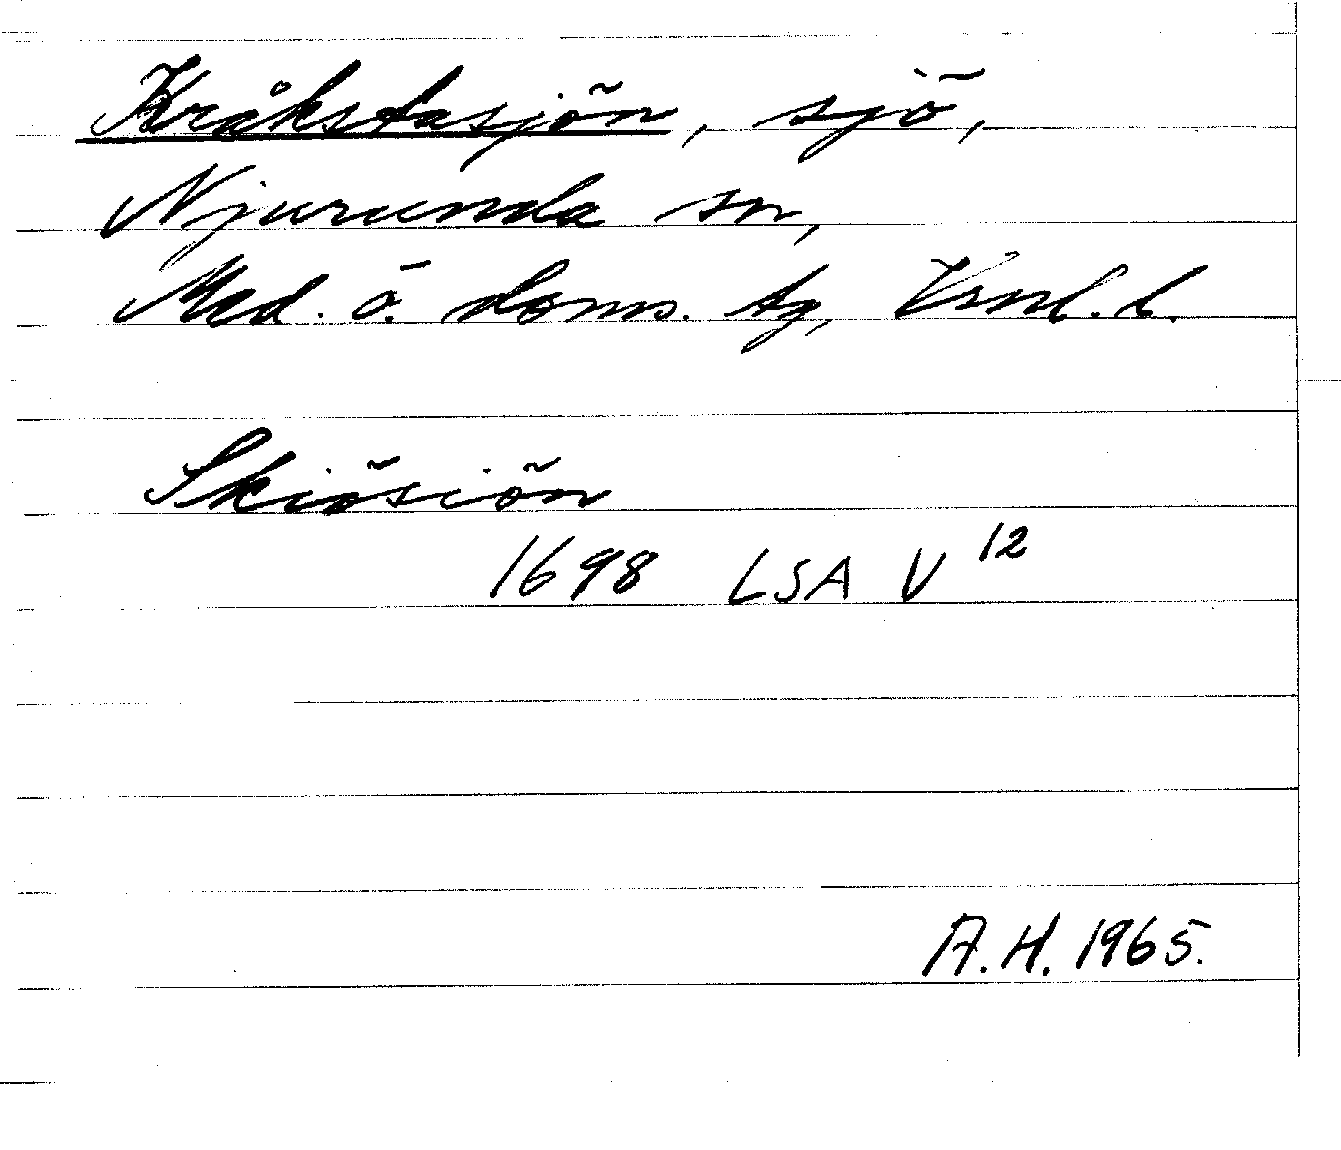 Kråkstasjön, sjö,
Njurunda sn,
Med. ö. doms. tg, Vsnl. l.
Skiösiön
1698 LSA V 12
A.H. 1965.